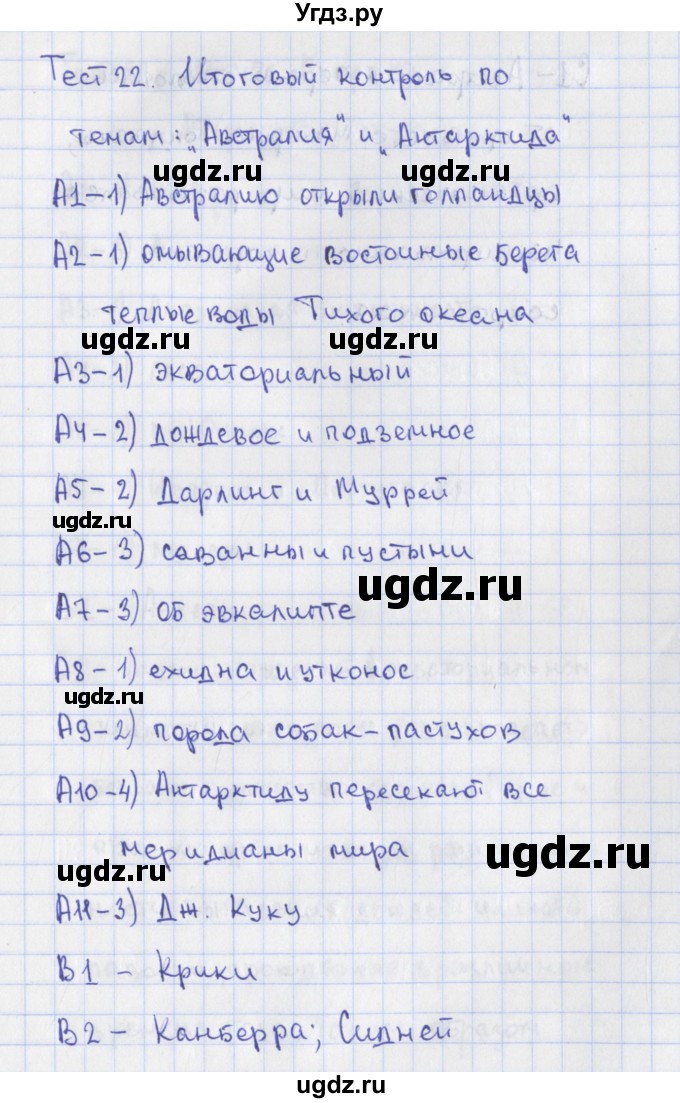 Угдз.ру
Тест 22. Итоговый контроль по
темам: „Австралия" и „Антарктида"
ugdz.ru ugdz.ru
А1-1) Австралию открыли голландцы
А2-1) омывающие восточные берега
теплые воды Тихого океана
ugdz.ru ugdz.ru
А3-1) экваториальный
А4-2) дождевое и подземное
А5-2) Дарлинг и Муррей
ugdz.ru
А6-3) саванны и пустыни
ugdz.ru
А7-3) об эвкалипте
А8-1) ехидна и утконос
А9-2) порода собак-пастухов
ugdz.ru
А10-4) Антарктиду пересекают все
меридианы мира
ugdz.ru
ugdz.ru
А11-3) Дж. Куку
В1 - Крики
В2 - Канберра; Сидней
ugdz.ru